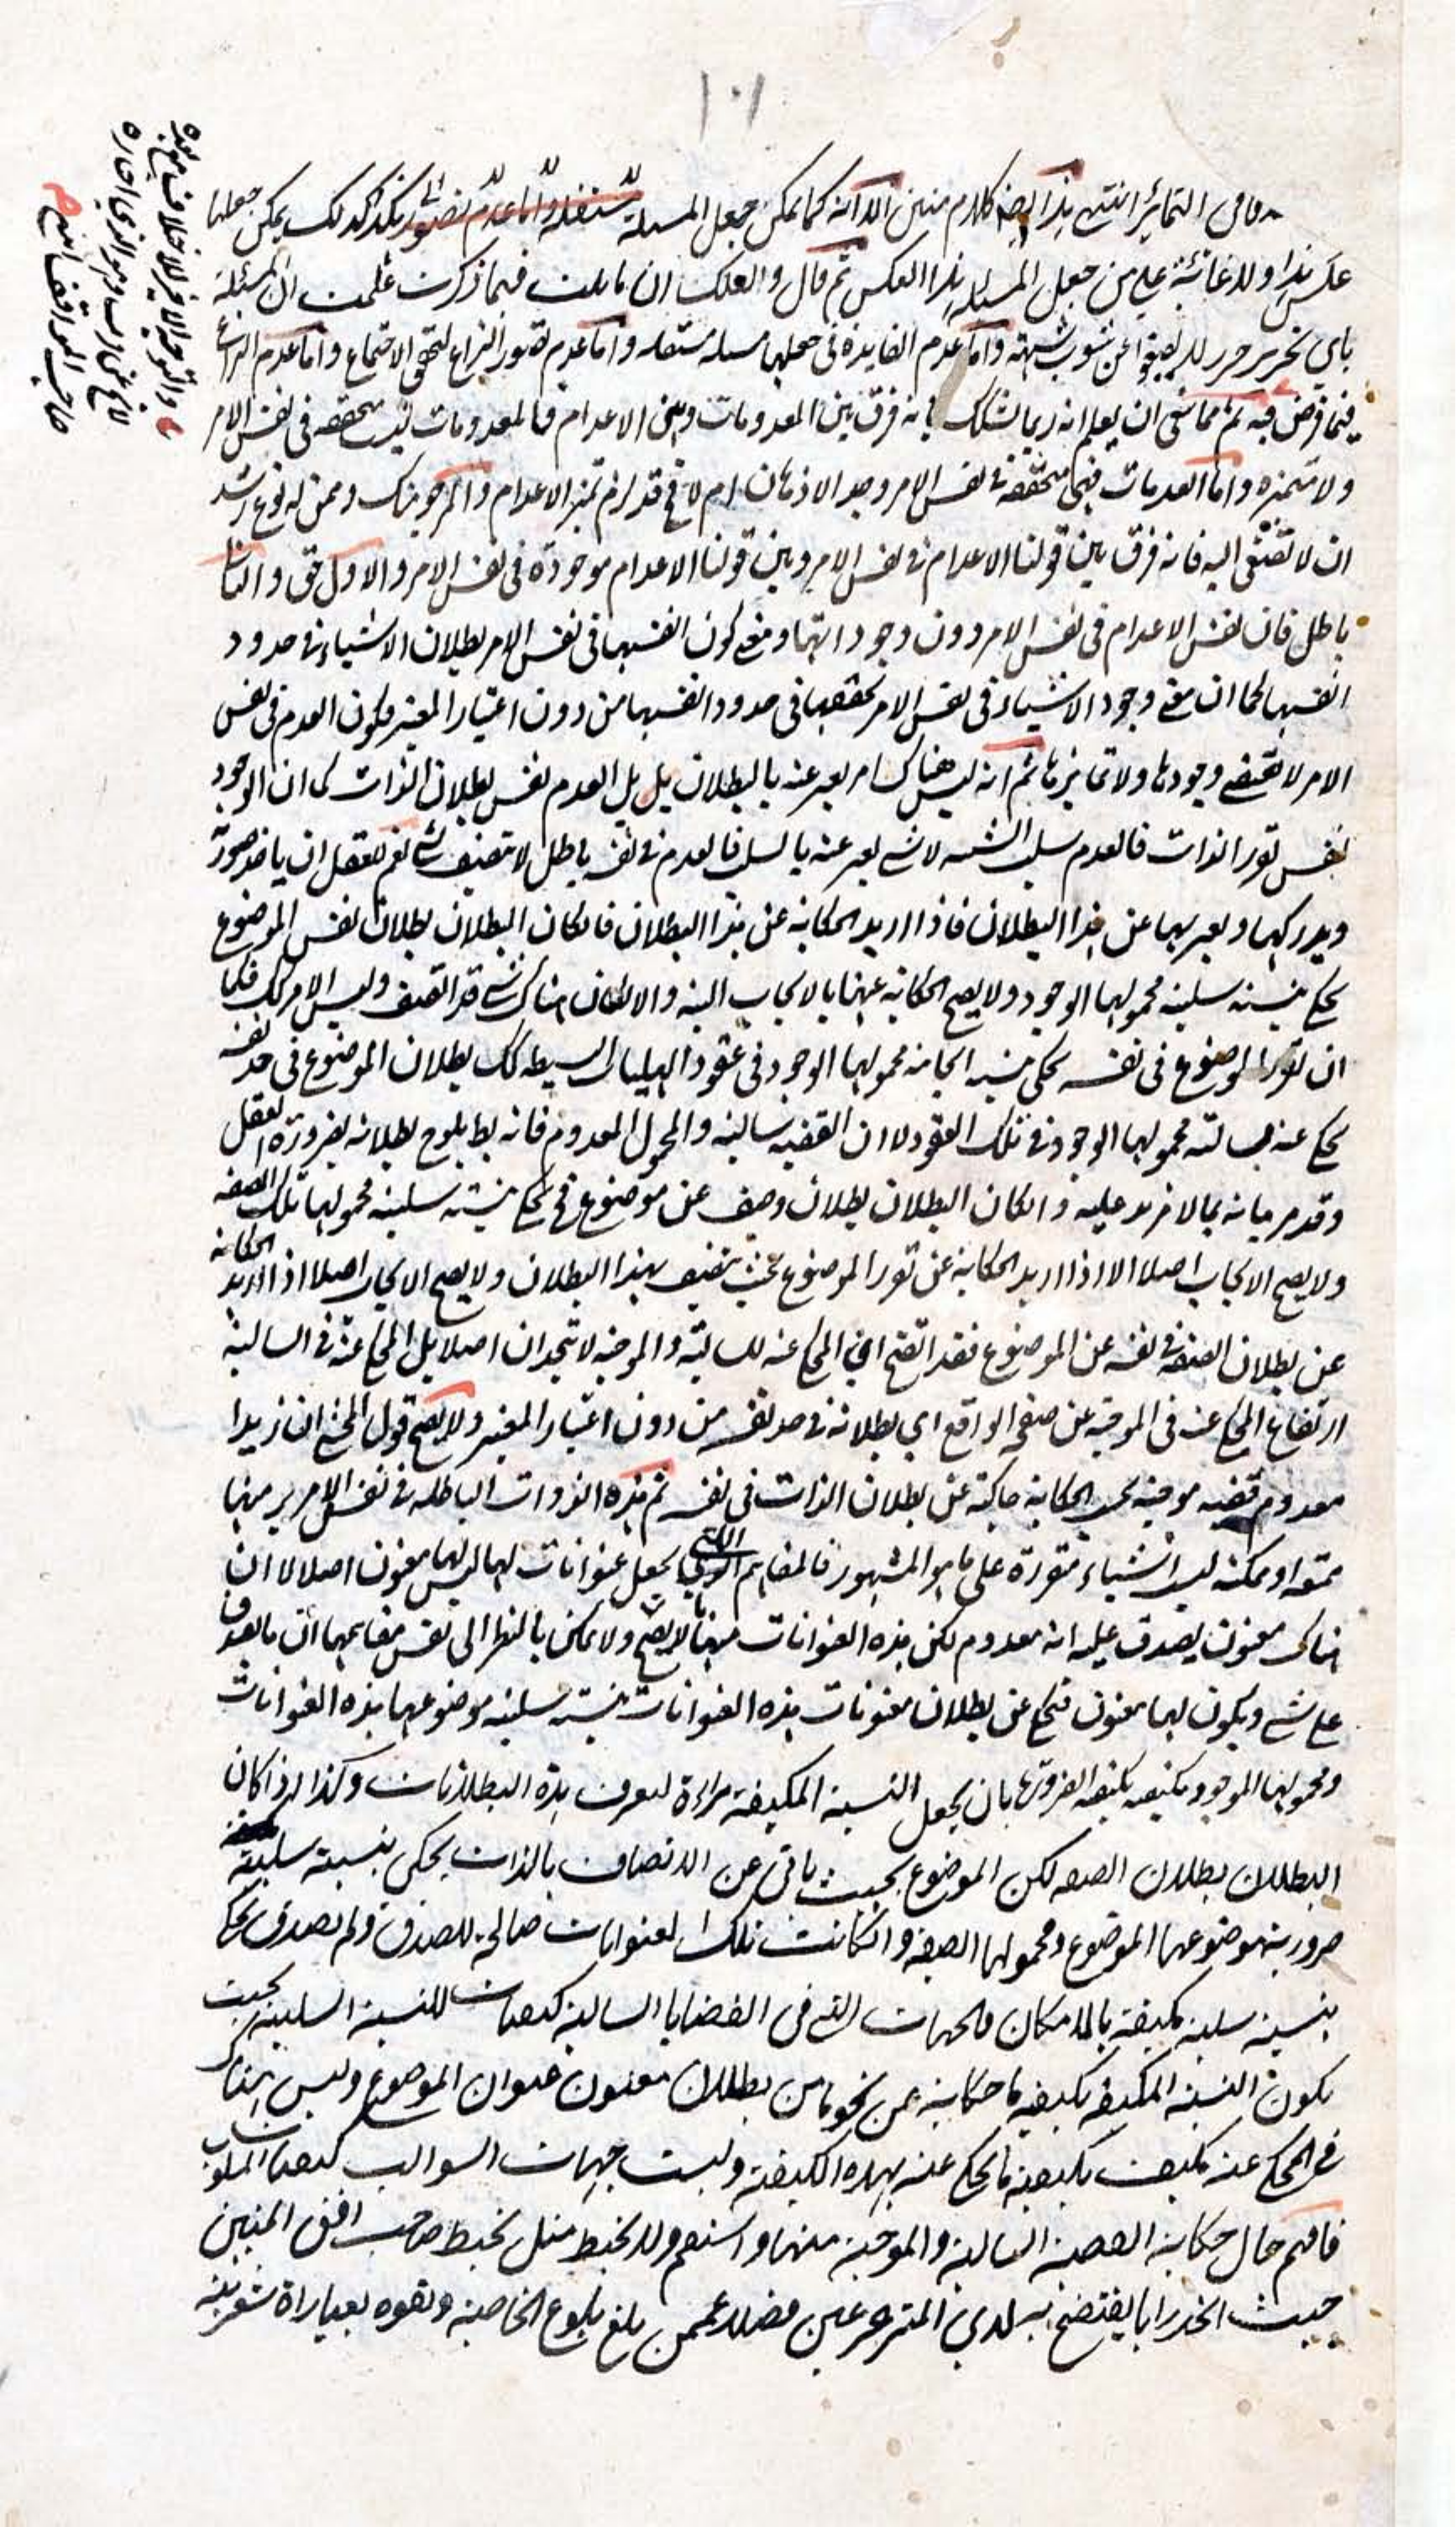 ١٠١
وفى التمائز انتهى هذا ايضا كلام متين الا انه كما يمكن جعل المسئلة كذلك يمكن جعلها
عكس هذا ولا غائبة على من جعل المسئلة هذا العكس ثم قال ولعلك ان تأملت فيما ذكرت علمت ان المسئلة
باى تحرير حرر لا يصفوا عن شوب شبهة واما عدم الفايدة فى جعلها مسئلة مستقلة واما عدم تصور النزاع لتحقق الاجتماع واما عدم النزاع
فيما فرض فيه ثم مما ينبغى ان يعلم انه ربما يشكك بانه فرق بين المعدومات وبين الاعدام فالمعدومات ليست متحققة فى نفس الامر
ولا متميزة واما العدمات فهى متحققة فى نفس الامر وجد الاذهان ام لا فح قد لزم تميز الاعدام والمرجو منك وممن له نوع رشد
ان لا تصغى اليه فانه فرق بين قولنا الاعدام فى نفس الامر وبين قولنا الاعدام موجودة فى نفس الامر والاول حق والثانى
باطل فان نفس الاعدام فى نفس الامر دون وجوداتها ومعنى كون انفسها فى نفس الامر بطلان الاشياء فى حدود
انفسها كما ان معنى وجود الاشياء فى نفس الامر تحققها فى حدود انفسها من دون اعتبار المعتبر فكون العدم فى نفس
الامر لا يقتضى وجودها ولا تمايزها ثم انه ليس هناك امر يعبر عنه بالبطلان بل بل العدم نفس بطلان الذات كما ان الوجود
نفس تقرر الذات فالعدم سلب الشىء لا شىء يعبر عنه بالسلب فالعدم فى نفسه باطل لا يتصف بشىء نعم للعقل ان ياخذ صورة
ويدركها ويعبر بها عن هذا البطلان فاذا اريد الحكاية عن هذا البطلان فان كان البطلان بطلان نفس الموضوع
يحكى بنسبة سلبية محمولها الوجود ولا يصح الحكاية عنها بالايجاب البتة والا لكان هناك شىء قد اتصف وليس الامر كك فكما
ان تقرر الموضوع فى نفسه يحكى بنسبة ايجابية محمولها الوجود فى عقود الهليات البسيطة كك بطلان الموضوع فى حد نفسه
يحكى عنه بسالبة محمولها الوجود فى تلك العقود لا ان القضية سالبة والمحمول المعدوم فانه بط يلوح بطلانه بضرورة العقل
وقد مر بيانه بما لا مزيد عليه وان كان البطلان بطلان وصف عن موضوع فح يحكى بنسبة سلبية محمولها تلك الصفة
ولا يصح الايجاب اصلا الا اذا اريد الحكاية عن تقرر الموضوع بحيث يتصف بهذا البطلان ولا يصح الايجاب اصلا اذا اريد الحكاية
عن بطلان الصفة فى نفسه عن الموضوع فقد اتضح ان المحكى عنه للسالبة والموجبة لا يتحدان اصلا بل المحكى عنه فى السالبة
ارتفاع المحكى عنه فى الموجبة عن صفحة الواقع اى بطلانه فى حد نفسه من دون اعتبار المعتبر ولا يصح قول المخبر ان زيدا
معدوم قضية موجبة بحسب الحكاية حاكية عن بطلان الذات فى نفسه ثم هذه الذوات الباطلة فى نفس الامر منها
ممتنعة او ممكنة ليس اشياء متقررة على ما هو المشهور فالمفاهيم التى يجعل عنوانات لها ليس لها معنون اصلا لا ان
هناك معنون يصدق عليه انه معدوم لكن هذه العنوانات منها لا يصح ولا يمكن بالنظر الى نفس مفاهيمها ان يصدق
على شىء ويكون لها معنون فيحكى عن بطلان معنونات هذه العنوانات بنسبة سلبية موضوعها هذه العنوانات
ومحمولها الموجود مكيفة بكيفية الضرورة بان يجعل النسبة المكيفة مراءة لتعرف هذه البطلانات وكذا اذا كان
البطلان بطلان الصفة لكن الموضوع بحيث يابى عن الاتصاف بالذات يحكى بنسبة سلبية
ضرورية موضوعها الموضوع ومحمولها الصفة وان كانت تلك العنوانات صالحة للصدق ولم يصدق يحكى
بنسبة سلبية مكيفة بالامكان فالجهات التى فى القضايا السالبة كيفيات للنسبة السلبية بحيث
يكون النسبة المكيفة بكيفية ما حكاية عن نحو ما من بطلان معنون عنوان الموضوع وليس هناك
فى المحكى عنه مكيف بكيفية ما يحكى عنه بهذه الكيفية وليست جهات السوالب كيفيات المسلوب
فافهم حال حكاية القضية السالبة والموجبة منها واستقم ولا تخبط مثل خبط صاحب افق المبين
حيث اتخذ رايا يفتضح به لدى المترعرعين فضلا عمن بلغ بلوغ الخاصية وتفوه بعباراة شعرية